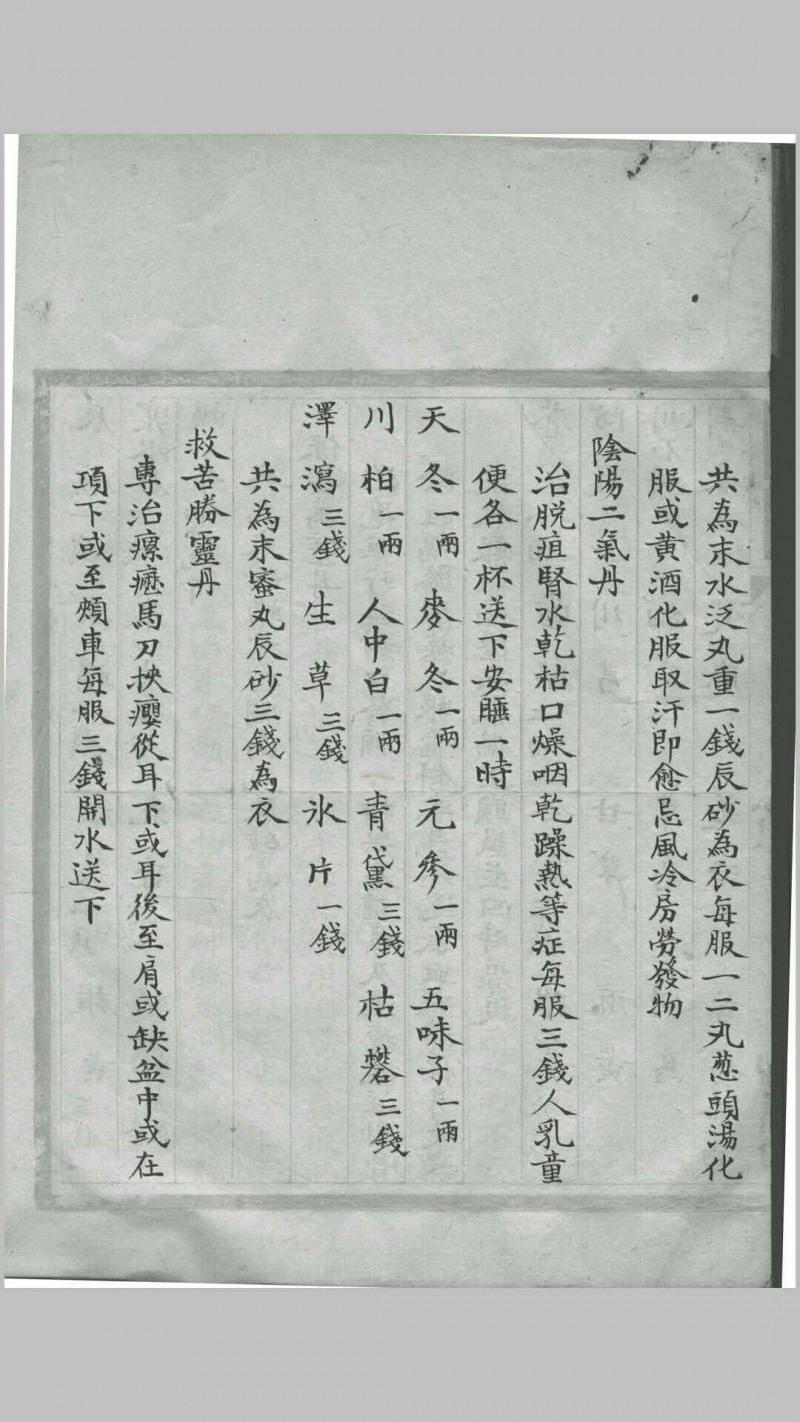 共為末水泛丸重一錢辰砂為衣每服一二丸葱頭湯化
服或黄酒化服取汗即愈忌風冷房勞發物
陰陽二氣丹
治脱疽腎水乾枯口燥咽乾躁熱等症每服三錢人乳童
便各一杯送下安睡一時
天冬一兩 麥冬一兩 元參一兩 五味子一兩
川柏一兩 人中白一兩 青黛三錢 枯礬三錢
澤瀉三錢 生草三錢 氷片一錢
共為末蜜丸辰砂三錢為衣
救苦勝靈丹
專治瘰癧馬刀挾癭從耳下或耳後至肩或缺盆中或在
項下或至頰車每服三錢開水送下